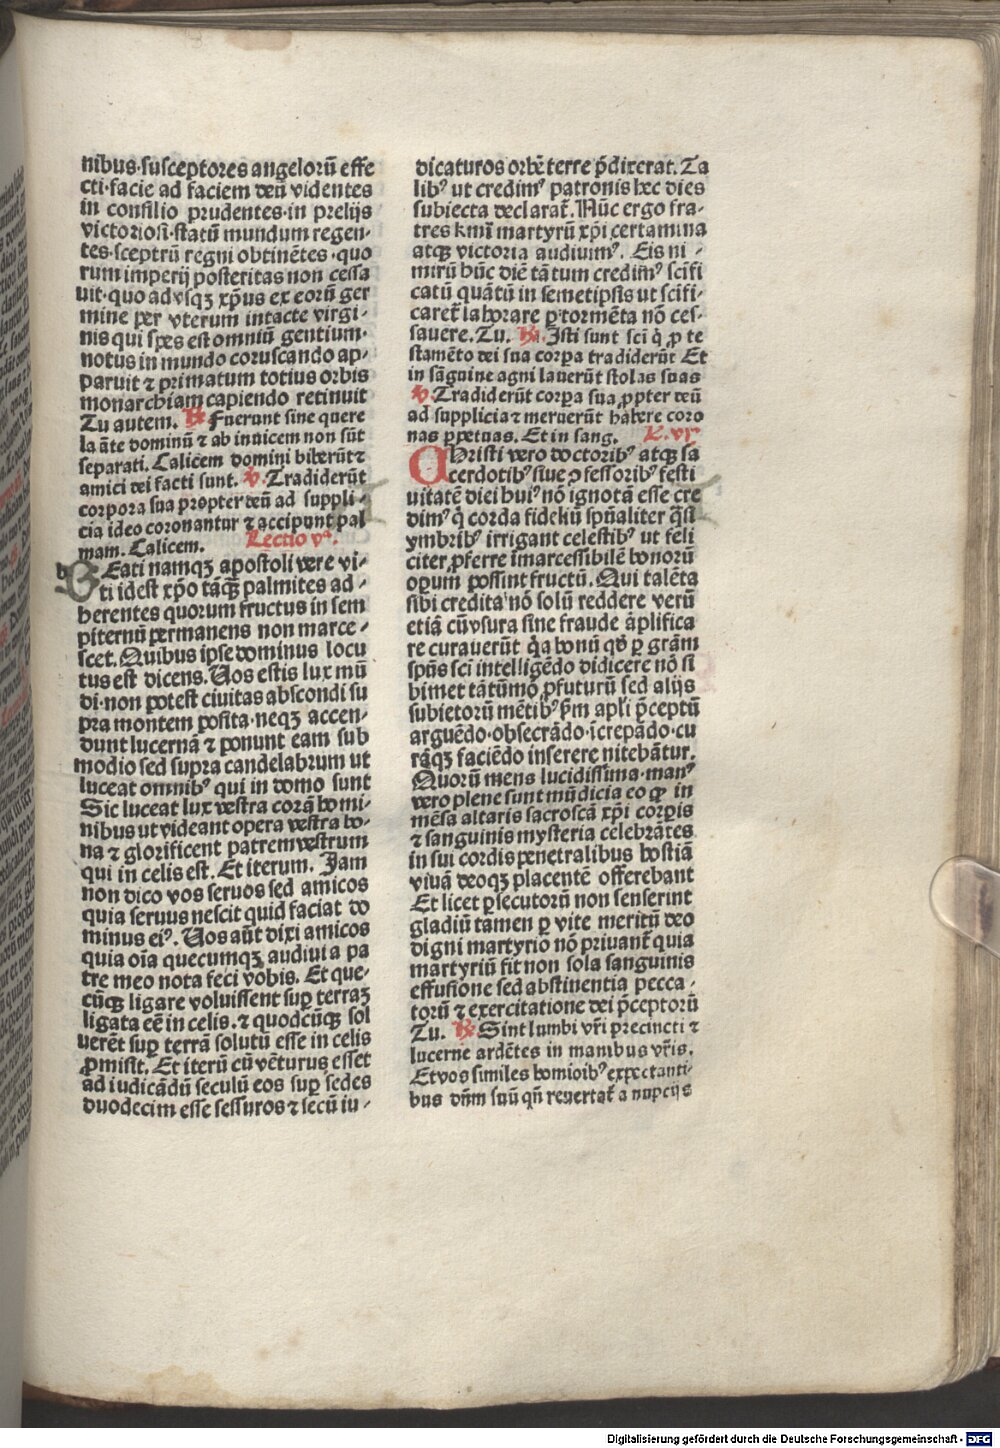 nibus·susceptores angeloꝝ effe
cti·facie ad faciem deū videntes
in consilio prudentes·in prelijs
victoriosi·statū mundum regen-
tes·sceptrū regni obtinētes·quo
rum imperij posteritas non cessa
uit·quo advsqꝫ xp̄us ex eorū ger
mine per vterum intacte virgi-
nis qui spes est omniū gentium·
notus in mundo coruscando ap-
paruit ⁊ primatum totius orbis
monarchiam capiendo retinuit
Tu autem. ℟ Fuerunt sine quere
la āte dominū ⁊ ab inuicem non sūt
separati. Calicem domini biberūt ⁊
amici dei facti sunt. ℣. Tradiderūt
corpora sua propter deū ad suppli-
cia ideo coronantur ⁊ accipunt pal
mam. Calicem. Lectio vᵃ.
BEati namqꝫ apostoli vere vi-
ti idest xp̄o tāqꝫ palmites ad-
herentes quorum fructus in sem
piternū permanens non marce-
scet. Quibus ipse dominus locu
tus est dicens. Uos estis lux mū
di·non potest ciuitas abscondi su
pra montem posita·neqꝫ accen-
dunt lucernā ⁊ ponunt eam sub
modio sed supra candelabrum ut
luceat omnibꝰ qui in domo sunt
Sic luceat lux vestra corā homi-
nibus ut videant opera vestra bo-
na ⁊ glorificent patrem vestrum
qui in celis est. Et iterum. Jam
non dico vos seruos sed amicos
quia seruus nescit quid faciat do
minus eiꝰ. Uos aūt dixi amicos
quia oīa quecumqꝫ audiui a pa
tre meo nota feci vobis. Et que-
cūqꝫ ligare voluissent suꝑ terraꝫ
ligata eē in celis·⁊ quodcūqꝫ sol
uerēt suꝑ terrā solutū esse in celis
ꝓmisit. Et iterū cū vēturus esset
ad iudicādū seculū eos suꝑ sedes
duodecim esse sessuros ⁊ secū iu-
dicaturos orbē terre p̄dixerat. Ta
libꝰ ut credimꝰ patronis hec dies
subiecta declarat᷑. Nūc ergo fra-
tres kmī martyrū xp̄i certamina
atqꝫ victoria audiuimꝰ. Eis ni-
mirū hūc diē tātum credimꝰ scifi
catū quātū in semetipsis ut scifi-
caret᷑ laborare ꝑ tormēta nō ces-
sauere. Tu. ℟. Isti sunt sci q̄ ꝓ te
stamēto dei sua corpa tradiderūt Et
in sāguine agni lauerūt stolas suas
℣. Tradiderūt corpa sua ꝓpter deū
ad supplicia ⁊ meruerūt habere coro
nas ꝑpetuas. Et in sang. L. vjᵃ
CHristi vero doctoribꝰ atqꝫ sa
cerdotibꝰ siue ꝯfessoribꝰ festi
uitatē diei huiꝰ nō ignotā esse cre
dimꝰ q̄ corda fideliū spūaliter q̄si
ymbribꝰ irrigant celestibꝰ ut feli
citer ꝓferre īmarcessibilē bonorū
oꝑum possint fructū. Qui talēta
sibi credita nō solū reddere verū
etiā cū vsura sine fraude āplifica
re curauerūt q̄a bonū qd̄ ꝑ grām
spūs sci intelligēdo didicere nō si
bimet tātūmō ꝓfuturū sed alijs
subietorū mētibꝰ p̄m apl̄i p̄ceptū
arguēdo·obsecrādo·īcrepādo·cu
rāqꝫ faciēdo inserere nitebātur.
Quorū mens lucidissima·manꝰ
vero plene sunt mūdicia eo ꝙ in
mēsa altaris sacroscā xp̄i corꝑis
⁊ sanguinis mysteria celebrātes
in sui cordis penetralibus hostiā
viuā deoqꝫ placentē offerebant
Et licet ꝑsecutorū non senserint
gladiū tamen ꝑ vite meritū deo
digni martyrio nō priuant᷑ quia
martyriū fit non sola sanguinis
effusione sed abstinentia pecca-
torū ⁊ exercitatione dei p̄ceptorū
Tu. ℟ Sint lumbi vr̄i precincti ⁊
lucerne ardētes in manibus vr̄is.
Et vos similes hominibꝰ expectanti-
bus dn̄m suū qn̄ reuertat᷑ a nupcijs
Digitalisierung gefördert durch die Deutsche Forschungsgemeinschaft - DFG